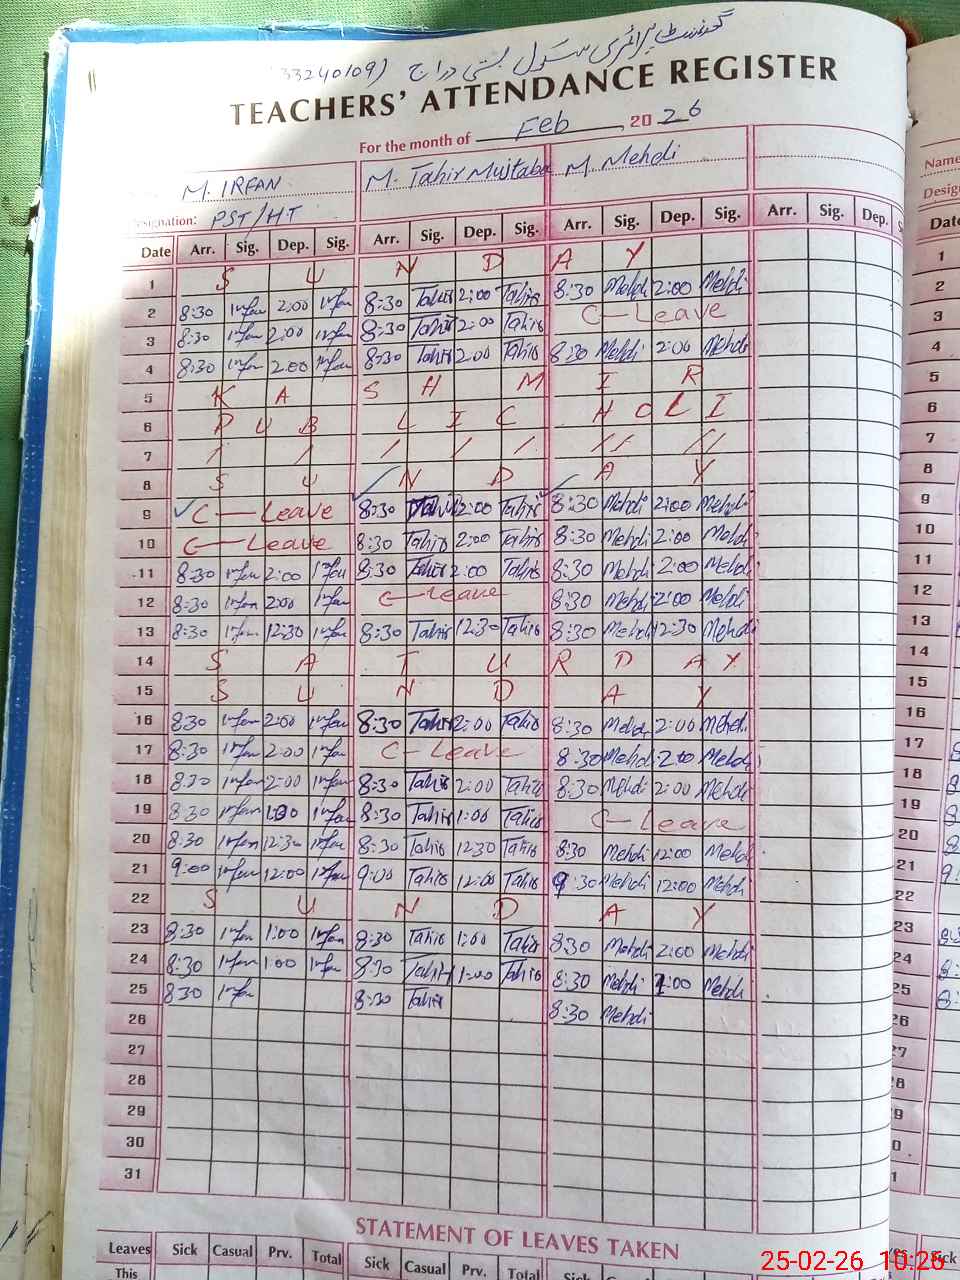 گورنمنٹ پرائمری سکول بستی دراج (33240109)
TEACHERS' ATTENDANCE REGISTER
For the month of Feb 2026
M. IRFAN M. Tahir Mujtaba M. Mehdi
Designation: PST/HT
Date Arr. Sig. Dep. Sig. Arr. Sig. Dep. Sig. Arr. Sig. Dep. Sig. Arr. Sig. Dep.
1 S U N D A Y
2 8:30 Irfan 2:00 Irfan 8:30 Tahir 2:00 Tahir 8:30 Mehdi 2:00 Mehdi
3 8:30 Irfan 2:00 Irfan 8:30 Tahir 2:00 Tahir C-Leave
4 8:30 Irfan 2:00 Irfan 8:30 Tahir 2:00 Tahir 8:30 Mehdi 2:00 Mehdi
5 K A S H M I R
6 P U B L I C H O L I
7 / / / / / // //
8 S U N D A Y
9 C-Leave 8:30 Tahir 2:00 Tahir 8:30 Mehdi 2:00 Mehdi
10 C-Leave 8:30 Tahir 2:00 Tahir 8:30 Mehdi 2:00 Mehdi
11 8:30 Irfan 2:00 Irfan 8:30 Tahir 2:00 Tahir 8:30 Mehdi 2:00 Mehdi
12 8:30 Irfan 2:00 Irfan C-Leave 8:30 Mehdi 2:00 Mehdi
13 8:30 Irfan 12:30 Irfan 8:30 Tahir 12:30 Tahir 8:30 Mehdi 12:30 Mehdi
14 S A T U R D A Y
15 S U N D A Y
16 8:30 Irfan 2:00 Irfan 8:30 Tahir 2:00 Tahir 8:30 Mehdi 2:00 Mehdi
17 8:30 Irfan 2:00 Irfan C-Leave 8:30 Mehdi 2:00 Mehdi
18 8:30 Irfan 2:00 Irfan 8:30 Tahir 2:00 Tahir 8:30 Mehdi 2:00 Mehdi
19 8:30 Irfan 1:00 Irfan 8:30 Tahir 1:00 Tahir C-Leave
20 8:30 Irfan 12:30 Irfan 8:30 Tahir 12:30 Tahir 8:30 Mehdi 12:00 Mehdi
21 9:00 Irfan 12:00 Irfan 9:00 Tahir 12:00 Tahir 9:30 Mehdi 12:00 Mehdi
22 S U N D A Y
23 8:30 Irfan 1:00 Irfan 8:30 Tahir 1:00 Tahir 8:30 Mehdi 2:00 Mehdi
24 8:30 Irfan 1:00 Irfan 8:30 Tahir 1:00 Tahir 8:30 Mehdi 1:00 Mehdi
25 8:30 Irfan 8:30 Tahir 8:30 Mehdi
26
27
28
29
30
31
STATEMENT OF LEAVES TAKEN
Leaves Sick Casual Prv. Total Sick Casual Prv. Total Sick Casual
This
Name
Date
1
2
3
4
5
6
7
8
9
10
11
12
13
14
15
16
17
18
19
20
21
22
23
24
25
26
25-02-26 10:26